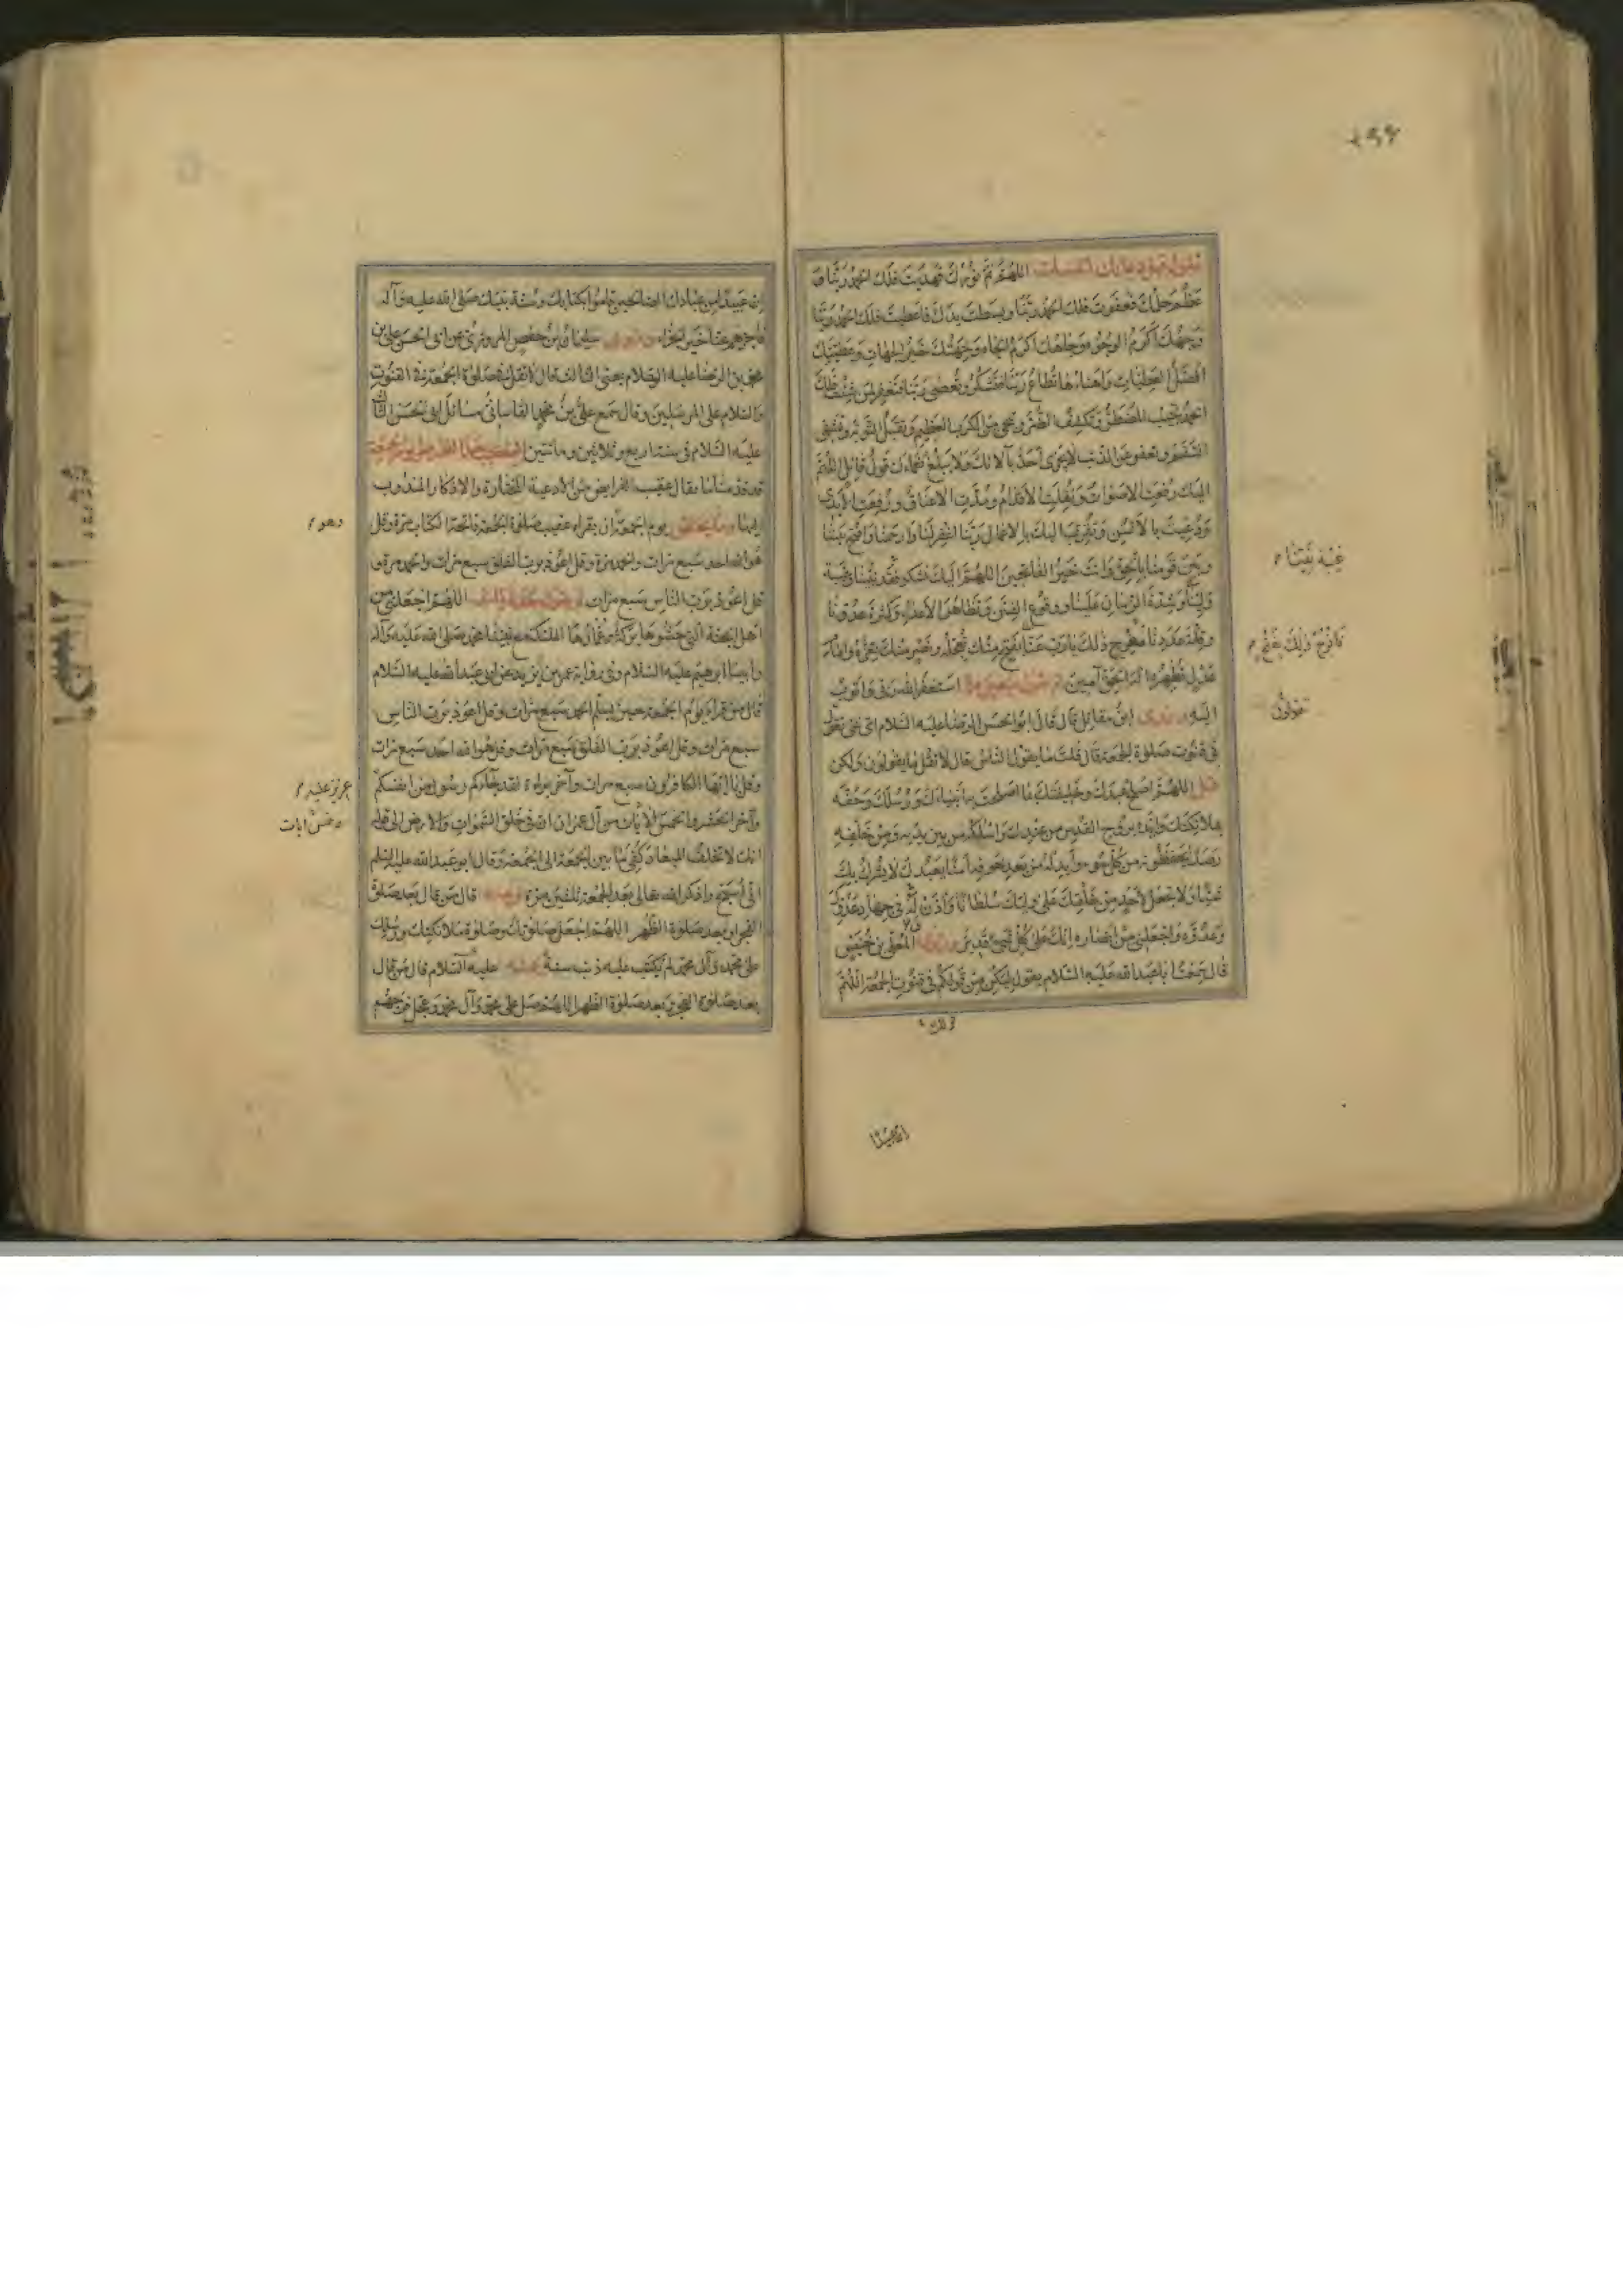 اللهم تم نورك فهديت فلك الحمد ربنا و
عظم حلمك فعفوت فلك الحمد ربنا وبسطت يدك فاعطيت فلك الحمد ربنا
وجهك اكرم الوجوه وجاهك اكرم الجاه وجهتك خير الجهات وعطيتك
افضل العطيات واهناها تطاع ربنا فتشكر وتعصى ربنا فتغفر لمن شئت فلك
الحمد تجيب المضطر وتكشف الضر وتنجي من الكرب العظيم وتقبل التوبة وتشفي
السقيم وتعفو عن المذنب لا يجزي احد بآلائك ولا يبلغ نعماءك قول قائل اللهم
اليك رفعت الاصوات ونقلت الاقدام ومدت الاعناق ورفعت الايدي
ودعيت بالالسن وتقرب اليك بالاعمال ربنا اغفر لنا وارحمنا وافتح بيننا
وبين قومنا بالحق وانت خير الفاتحين اللهم اليك نشكو فقد نبينا وغيبة
ولينا وشدة الزمان علينا ووقوع الفتن وتظاهر الاعداء وكثرة عدونا
وقلة عددنا ففرج ذلك يا رب عنا بفتح منك تعجله ونصر منك تعزه وامام
عدل تظهره اله الحق آمين ثم تقول سبعين مرة استغفر الله ربي واتوب
اليه وروى ابن مقاتل قال قال ابو الحسن الرضا عليه السلام اي شيء تقول
في قنوت صلوة الجمعة قال قلت ما يقول الناس قال لا تقل كما يقولون ولكن
قل اللهم اصلح عبدك وخليفتك بما اصلحت به أنبياءك ورسلك وحفه
بملائكتك وايده بروح القدس من عندك واسلكه من بين يديه ومن خلفه
رصدا يحفظونه من كل سوء وابدله من بعد خوفه أمنا يعبدك لا يشرك بك
شيئا ولا تجعل لاحد من خلقك على وليك سلطانا وأذن له في جهاد عدوك
وعدوه واجعلني من انصاره انك على كل شيء قدير وروى المعلى بن خنيس
قال سمعت ابا عبدالله عليه السلام يقول ليكن من قولكم في قنوت الجمعة اللهم
ان عبيدا من عبادك الصالحين قاموا بكتابك وسنة نبيك صلى الله عليه وآله
فاجزهم عنا خير الجزاء وروى سليمان بن حفص المروزي عن ابي الحسن علي بن
محمد بن الرضا عليه السلام يعني الثالث قال لا تقل في صلوة الجمعة في القنوت
والسلام على المرسلين وقال سمع علي بن محمد القاساني مسائل ابي الحسن الثالث
عليه السلام في سنة اربع وثلاثين ومأتين
قدمنا ما يقال عقيب الفرايض من الادعية المختارة والاذكار المندوب
اليها وما يختص يوم الجمعة ان يقراء عقيب صلوة الجمعة فاتحة الكتاب مرة وقل
هو الله احد سبع مرات والحمد مرة وقل اعوذ برب الفلق سبع مرات والحمد مرة و
قل اعوذ برب الناس سبع مرات اللهم اجعلني من
اهل الجنة التي حشوها بركة وعمارها الملئكة مع نبينا محمد صلى الله عليه وآله
وابينا ابرهيم عليه السلام وفي رواية عمر بن يزيد عن ابي عبد الله عليه السلام
قال من قراء يوم الجمعة حين يسلم الحمد سبع مرات وقل اعوذ برب الناس
سبع مرات وقل اعوذ برب الفلق سبع مرات وقل هو الله احد سبع مرات
وقل يا ايها الكافرون سبع مرات وآخر براءة لقد جاءكم رسول من انفسكم
وآخر الحشر والخمس الآيات من آل عمران ان في خلق السموات والارض الى قوله
انك لا تخلف الميعاد كفي ما بين الجمعة الى الجمعة وقال ابو عبد الله عليه السلم
قال من قال بعد صلوة
الفجر او بعد صلوة الظهر اللهم اجعل صلواتك وصلوة ملائكتك ورسلك
على محمد وآل محمد لم يكتب عليه ذنب سنة وعنه عليه السلام قال من قال
بعد صلوة الفجر وبعد صلوة الظهر اللهم صل على محمد وآل محمد وعجل فرجهم